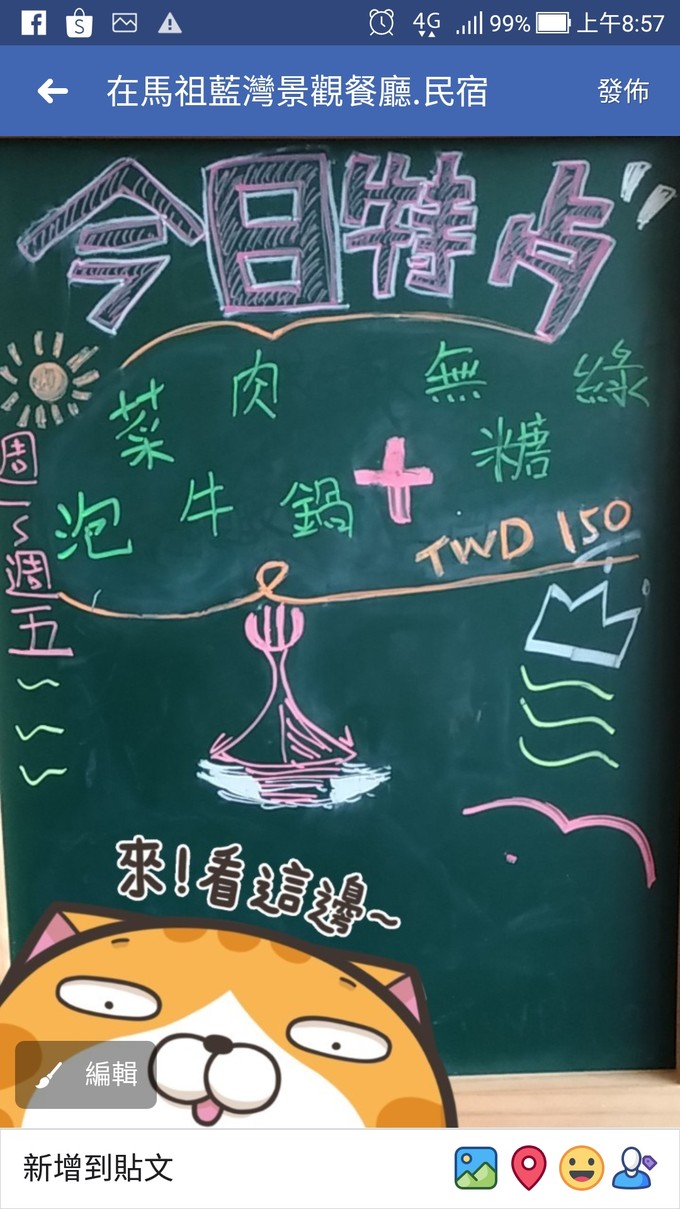 上午8:57
4G
99%
在馬祖藍灣景觀餐廳.民宿
發佈
今日特歺
週一~週五
泡菜牛肉鍋+無糖綠
TWD 150
來!看這邊~
編輯
新增到貼文